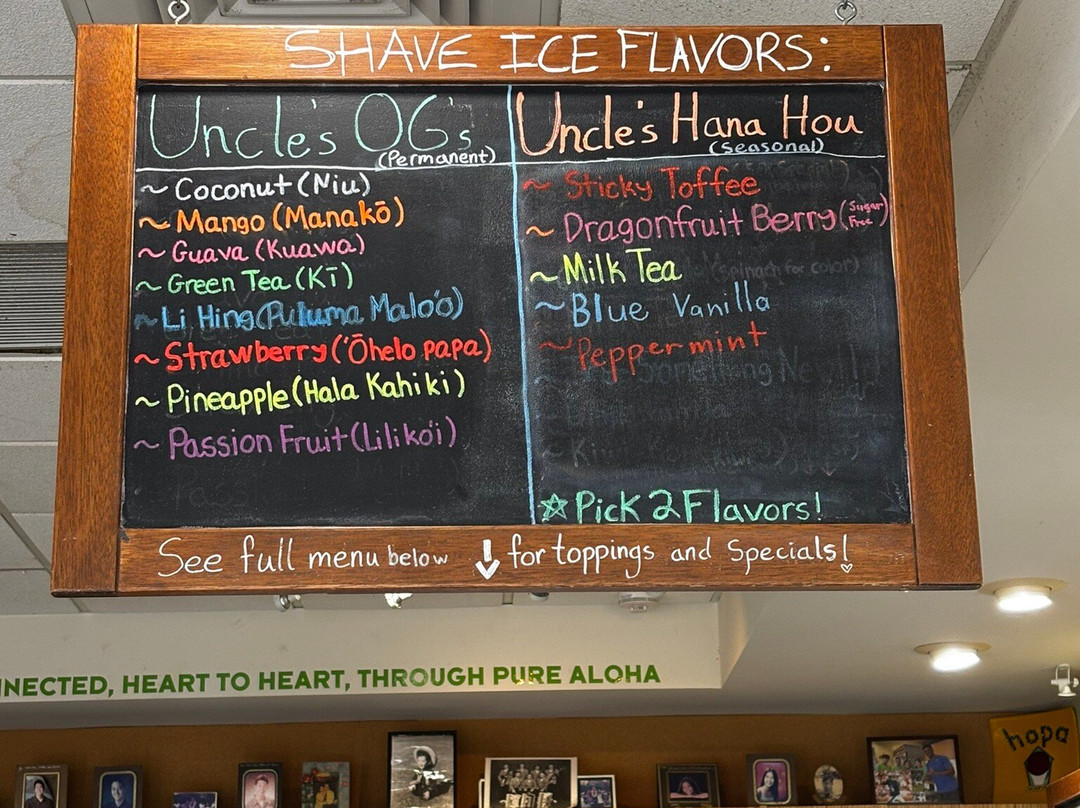 SHAVE ICE FLAVORS:
Uncle's OG's
(Permanent)
~ Coconut (Niu)
~ Mango (Manakō)
~ Guava (Kuawa)
~ Green Tea (Kī)
~ Li Hing (Puluma Malo'o)
~ Strawberry ('Ōhelo papa)
~ Pineapple (Hala Kahiki)
~ Passion Fruit (Liliko'i)
Uncle's Hana Hou
(Seasonal)
~ Sticky Toffee
~ Dragonfruit Berry (Sugar Free)
~ Milk Tea
(spinach for color)
~ Blue Vanilla
~ Peppermint
Something
☆ Pick 2 Flavors!
See full menu below ↓ for toppings and Specials!
NNECTED, HEART TO HEART, THROUGH PURE ALOHA
hapa